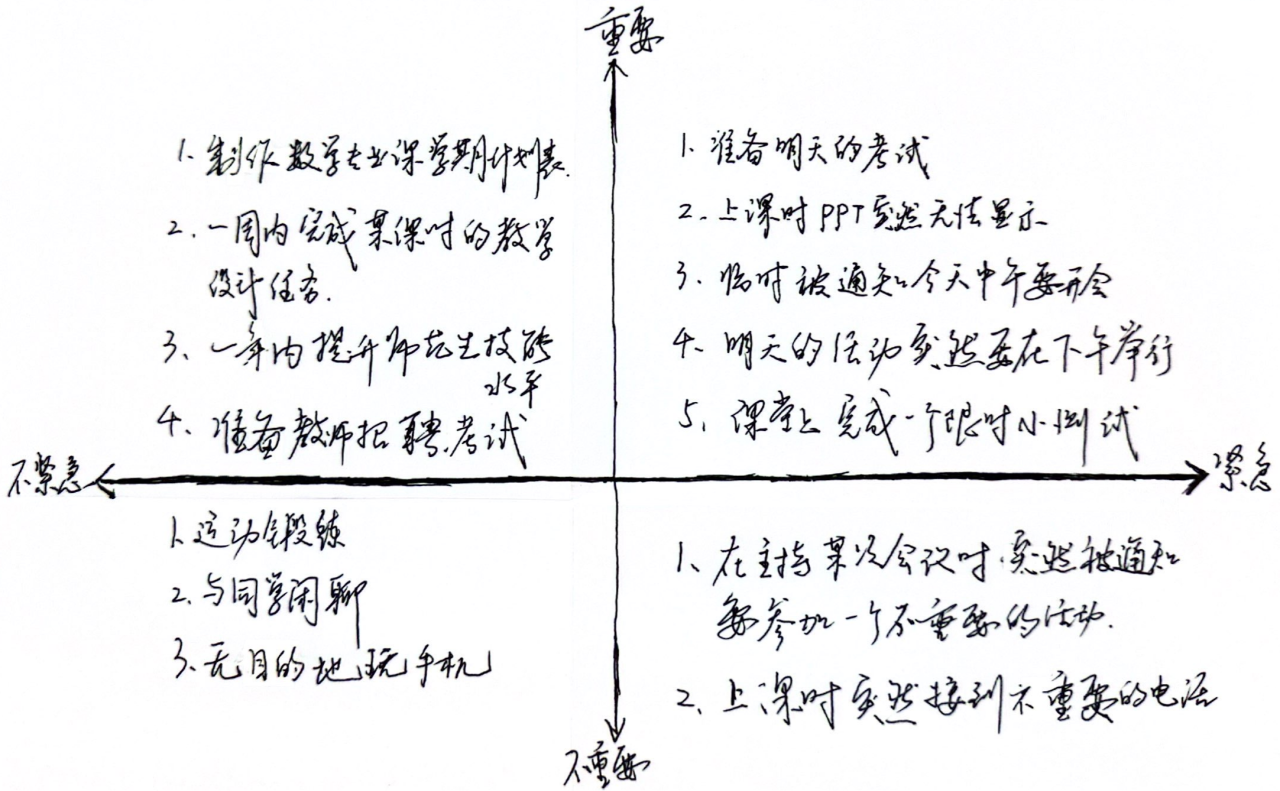 重要
1. 制作数学专业课学期计划表.
2. 一周内完成某课时的教学
设计任务.
3、一年内提升师范生技能
水平
4、准备教师招聘考试
1. 准备明天的考试
2. 上课时PPT突然无法显示
3. 临时被通知今天中午要开会
4、明天的活动突然要在下午举行
5、课堂上完成一个限时小测试
不紧急
紧急
1. 运动锻练
2. 与同学闲聊
3. 无目的地玩手机
1、在主持某次会议时,突然被通知
要参加一个不重要的活动.
2、上课时突然接到不重要的电话
不重要